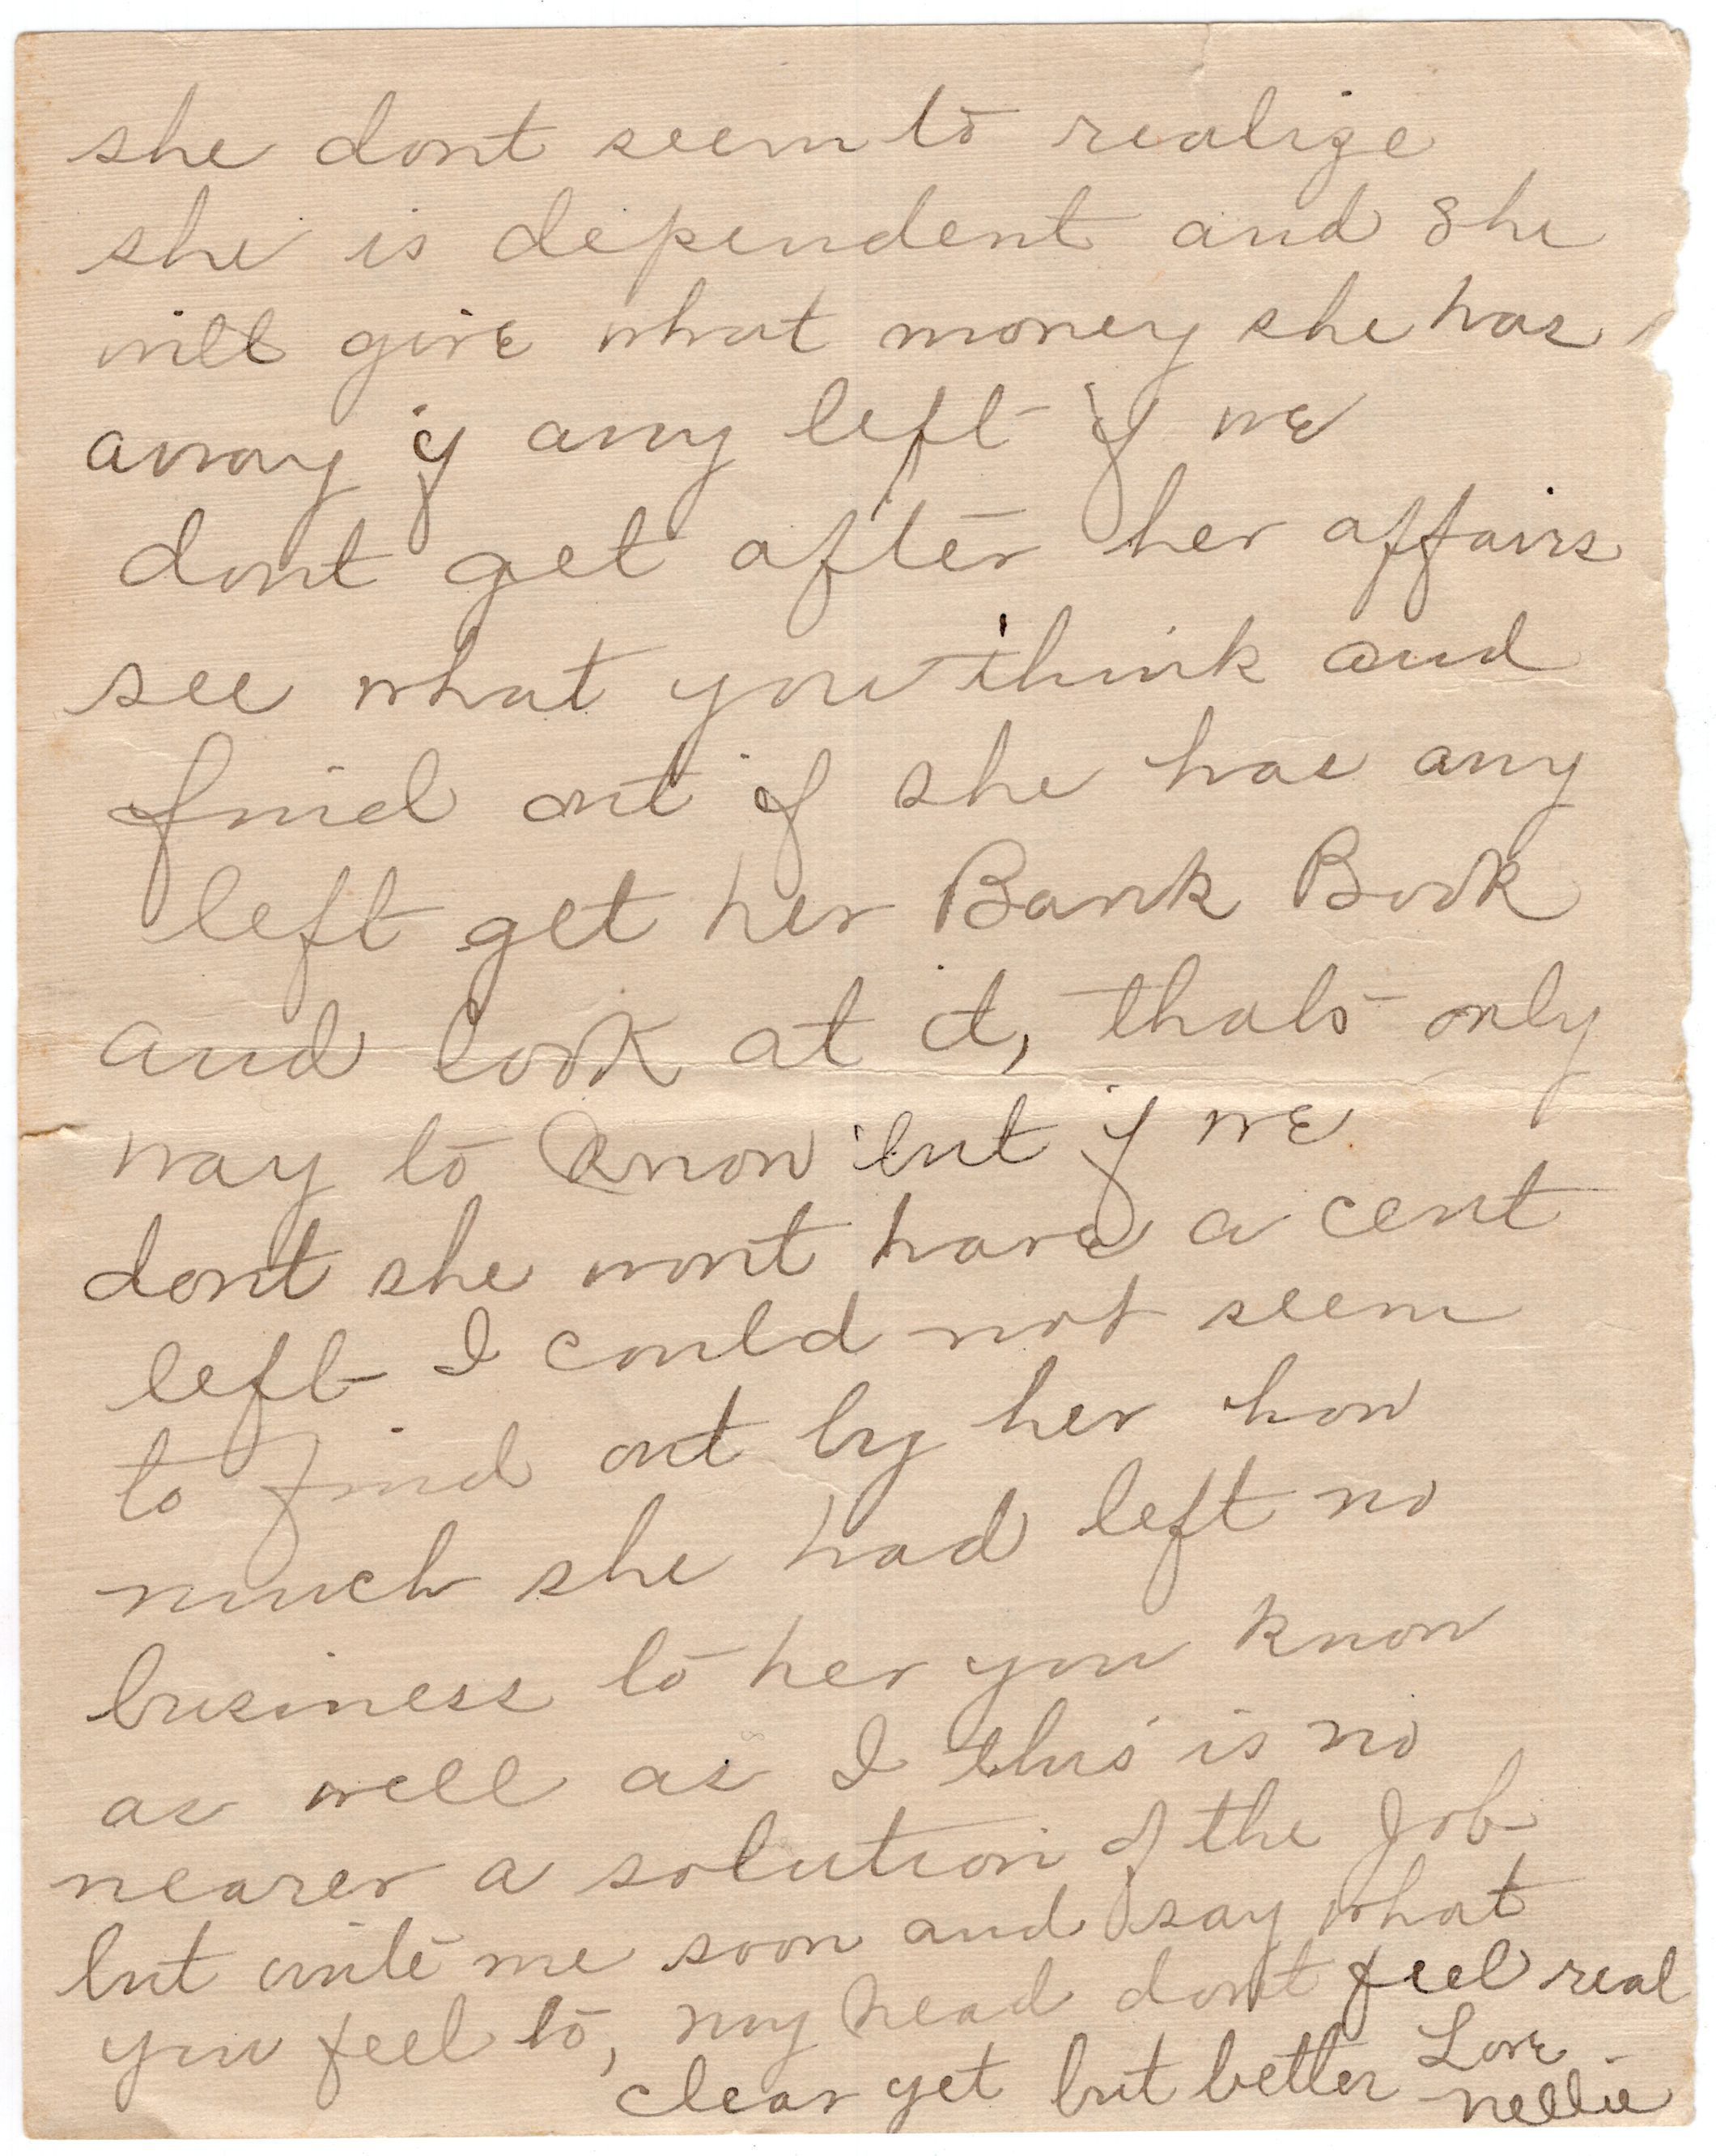 she dont seem to realize
she is dependent and she
will give what money she has
away if any left if we
dont get after her affairs
see what you think and
find out if she has any
left get her Bank Book
and look at it, thats only
way to know but if we
dont she wont have a cent
left I could not seem
to find out by her how
much she had left no
business to her you know
as well as I this is no
nearer a solution of the Job
but write me soon and say what
you feel to, my head dont feel real
clear yet but better Love
Nellie